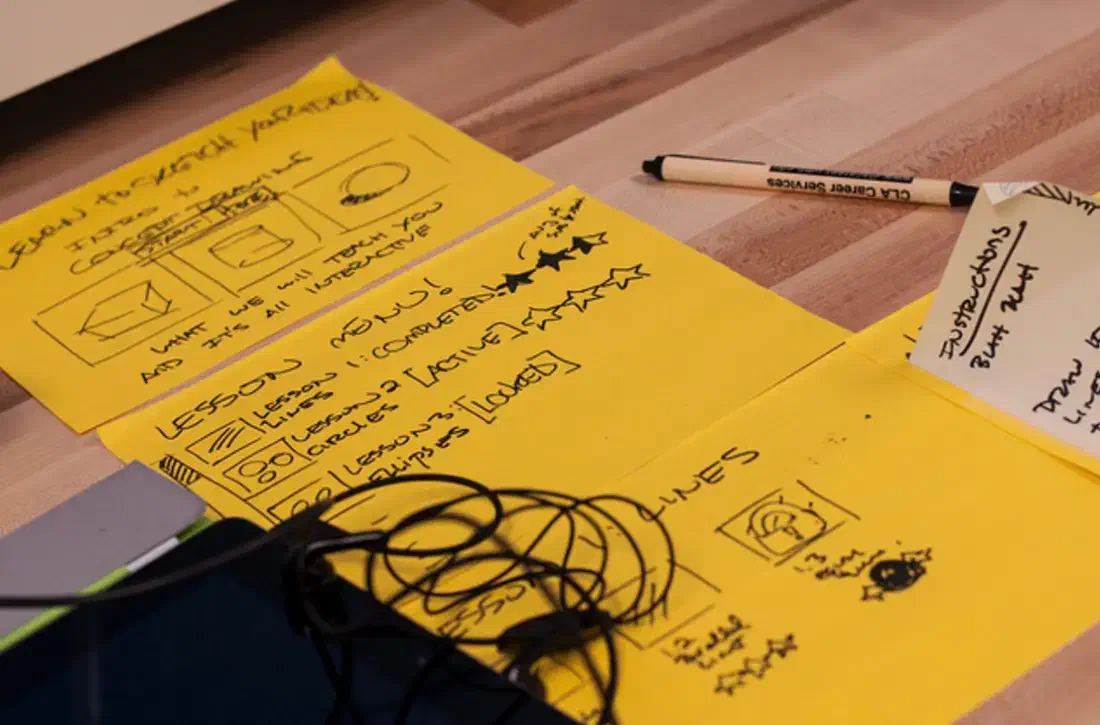 LEARN TO SKETCH YOUR IDEAS
INTRO to
CONCEPT DRAWING
START HERE
WHAT WE WILL TEACH YOU
AND IT'S ALL INTERACTIVE
LESSON MENU!
LESSON 1: COMPLETED!
LINES
LESSON 2 [ACTIVE]
CIRCLES
LESSON 3: [LOCKED]
ELLIPSES
CLA Career Services
INSTRUCTIONS
BLAH BLAH
DRAW
LINES
LINES
LESSON
1.3
1.2